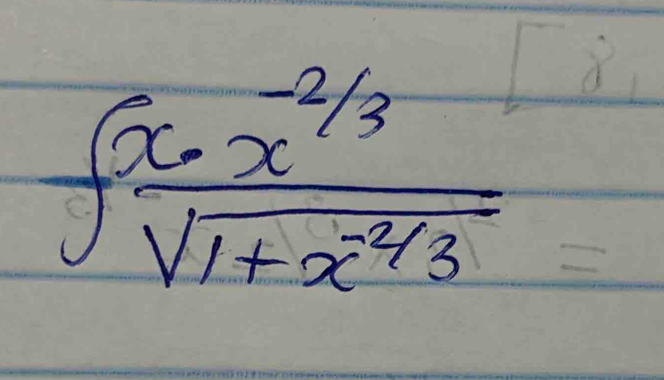 ∫ x · x^{-2/3} / √(1 + x^{-2/3})